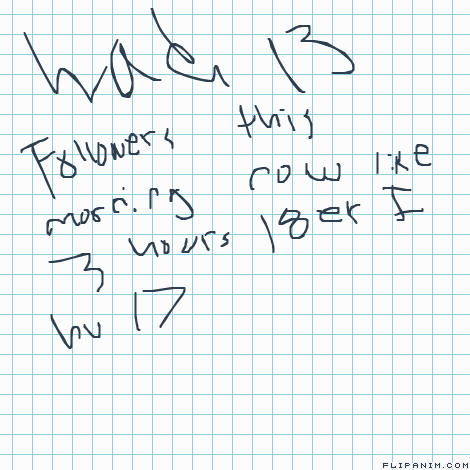 had 13
Followers this
morning now like
3 hours l8er I
hv 17
FLIPANIM.COM